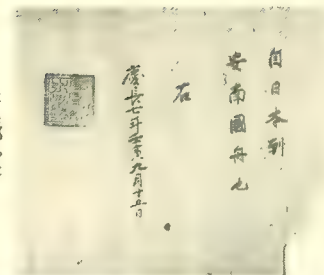 自日本到
安南國舟也
右
慶長七年壬寅九月十五日